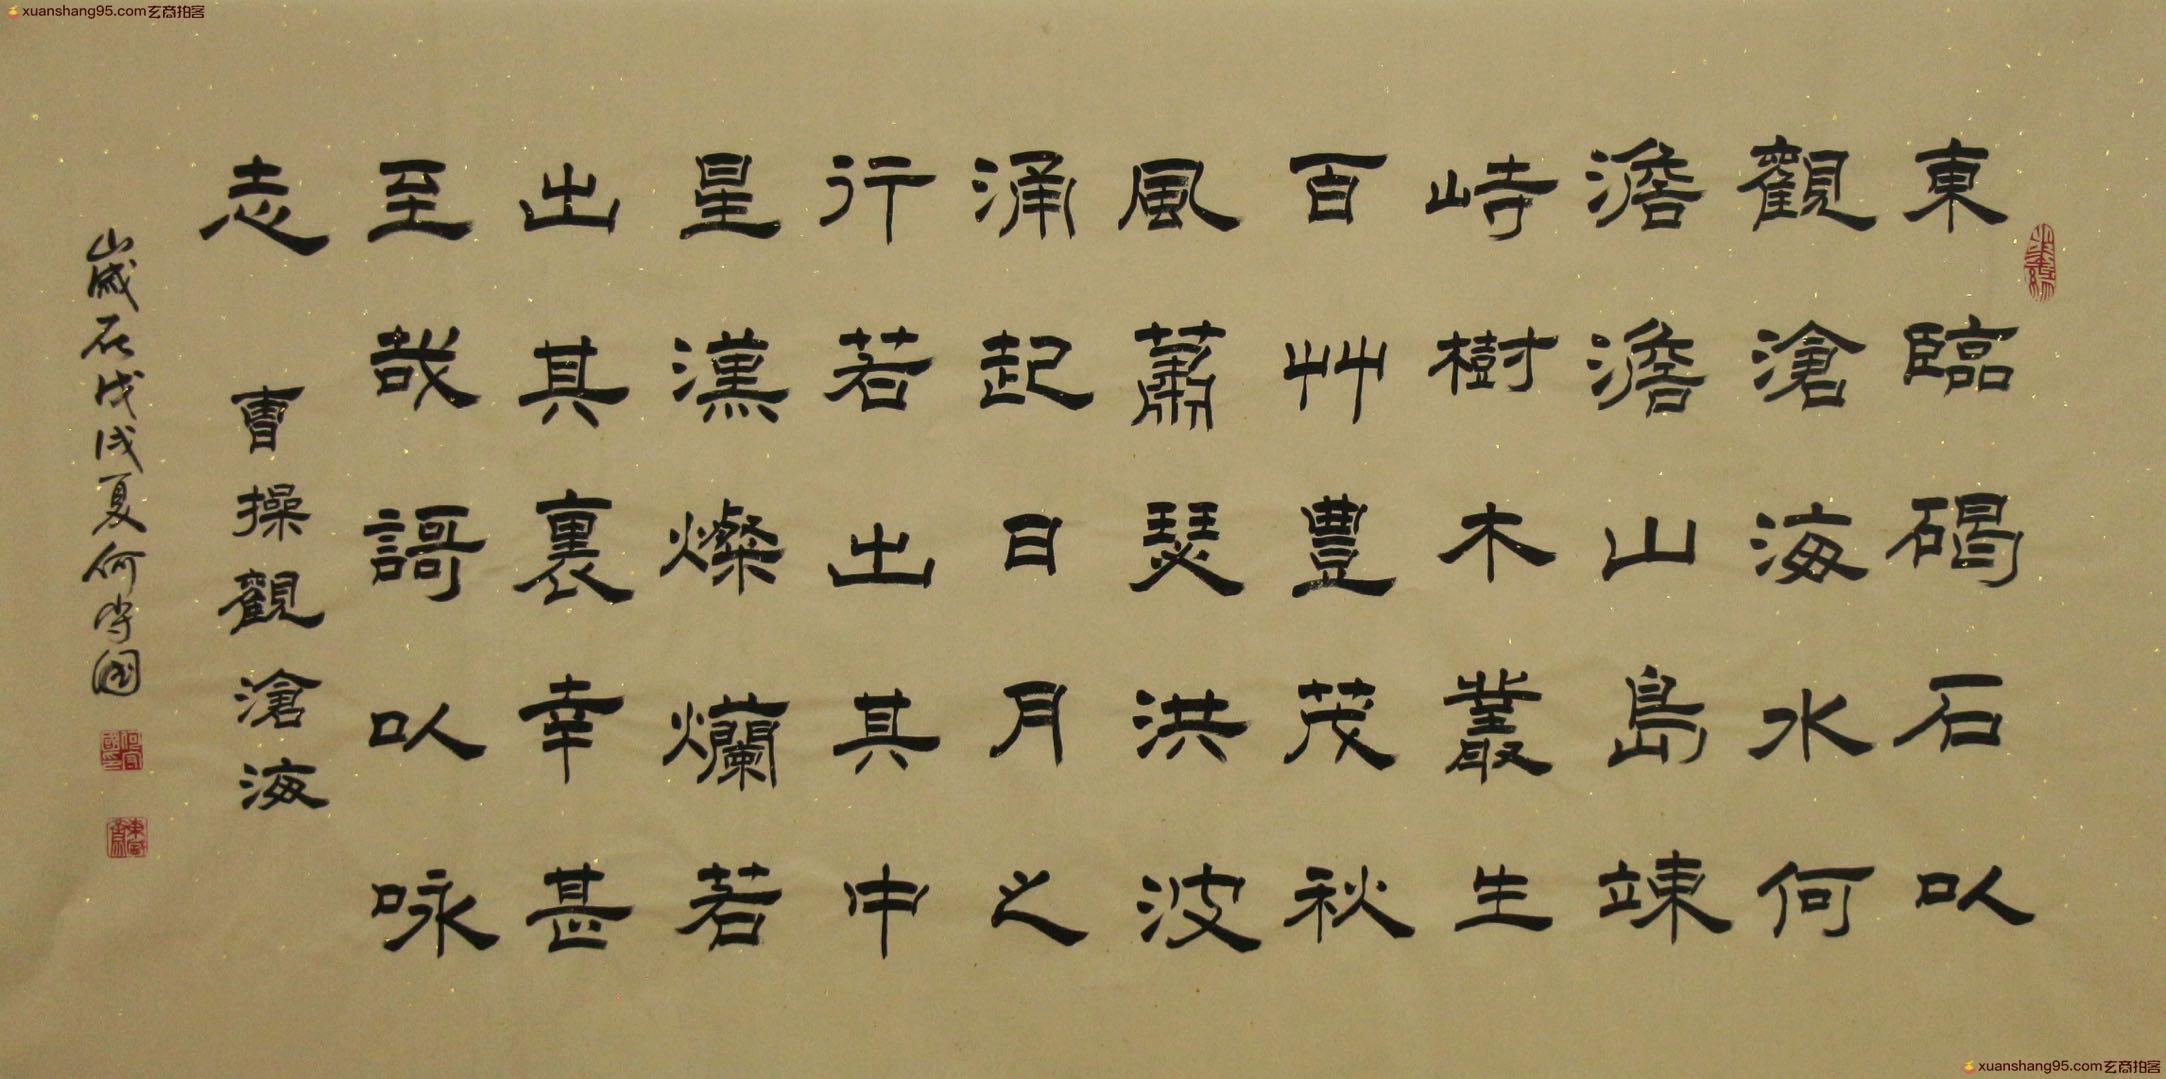 xuanshang95.com玄商拍客
東臨碣石以
觀滄海水何
澹澹山島竦
峙樹木叢生
百艸豐茂秋
風蕭瑟洪波
涌起日月之
行若出其中
星漢燦爛若
出其裏幸甚
至哉謌以咏
志
曹操觀滄海
歲在戊戌夏何守國
xuanshang95.com玄商拍客